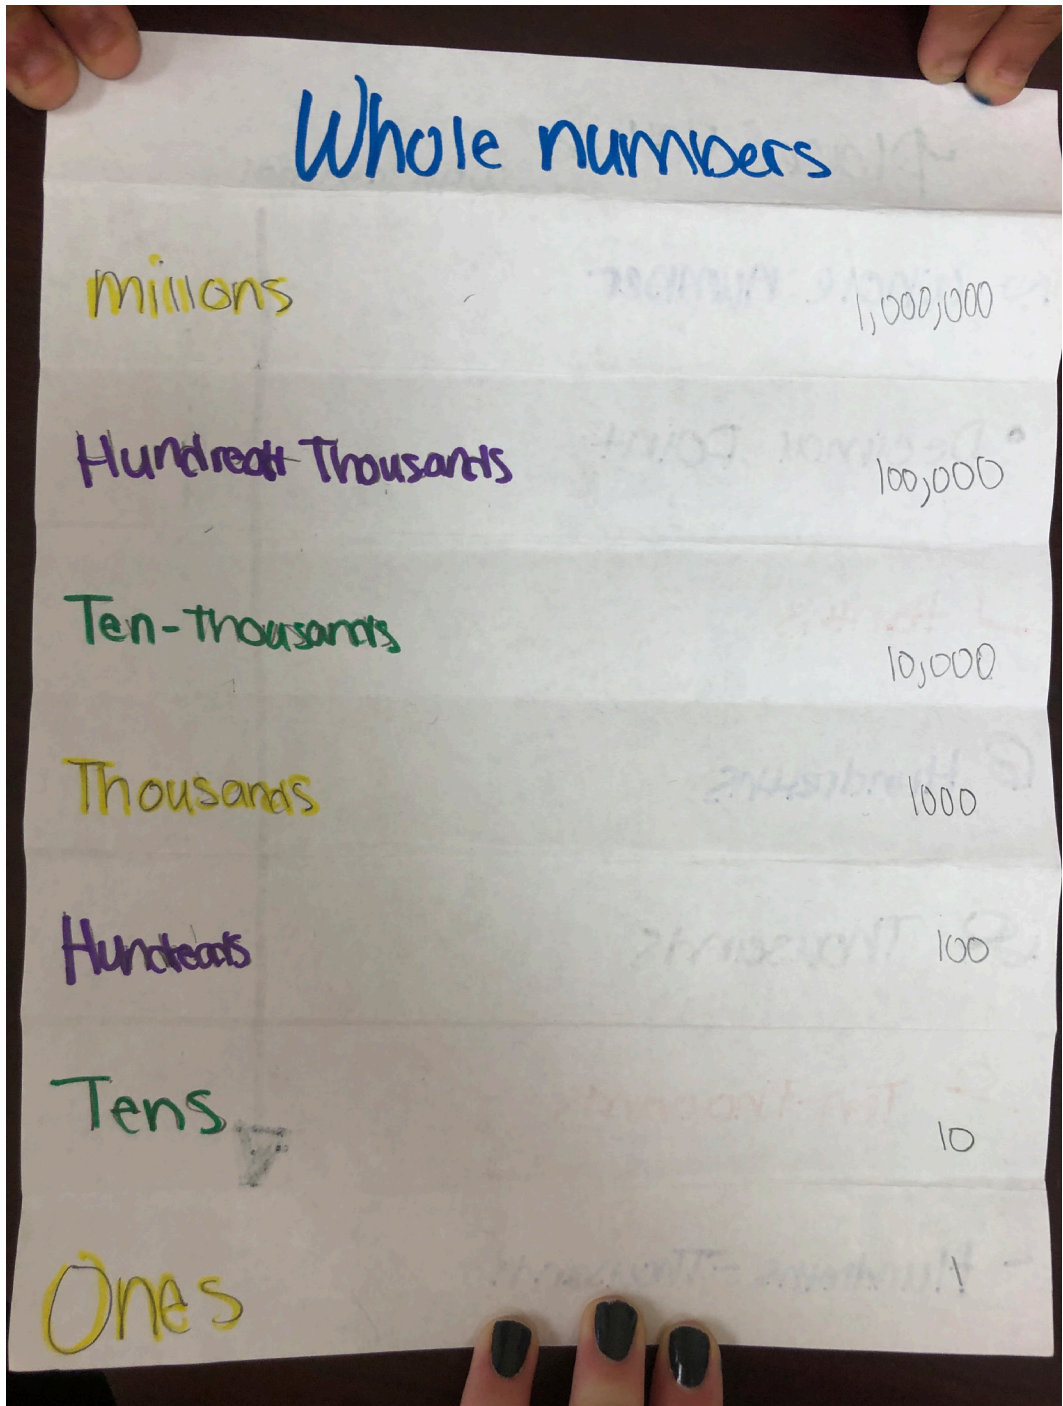 Whole numbers
millons 1,000,000
Hundredth Thousands 100,000
Ten-thousands 10,000
Thousands 1000
Hundreds 100
Tens 10
Ones 1